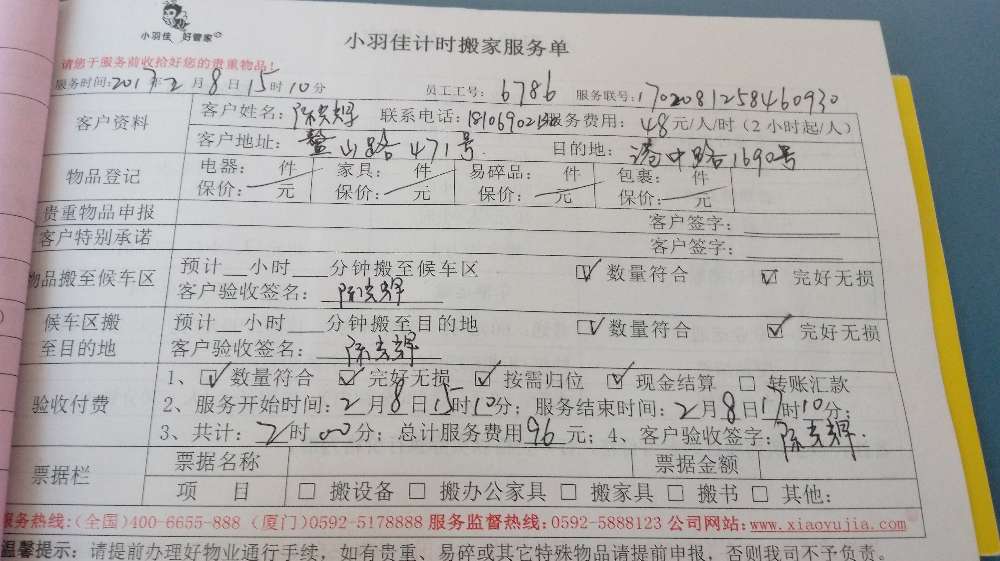 小羽佳 好管家
小羽佳计时搬家服务单
请您于服务前收拾好您的贵重物品！
服务时间:2017年2月8日15时10分 员工工号: 6786 服务联号:1702081258460930
客户资料 客户姓名: 联系电话: 服务费用: 48元/人/时(2小时起/人)
客户地址: 鳌山路471号 目的地: 港中路1690号
物品登记 电器: 件 家具: 件 易碎品: 件 包裹: 件
保价: 元 保价: 元 保价: 元 保价: 元
贵重物品申报 客户签字:
客户特别承诺 客户签字:
物品搬至候车区 预计 小时 分钟搬至候车区 ☑ 数量符合 ☑ 完好无损
客户验收签名:
候车区搬至目的地 预计 小时 分钟搬至目的地 ☑ 数量符合 ☑ 完好无损
客户验收签名:
验收付费 1、☑ 数量符合 ☑ 完好无损 ☑ 按需归位 ☑ 现金结算 □ 转账汇款
2、服务开始时间:2月8日15时10分; 服务结束时间:2月8日17时10分;
3、共计: 2时00分; 总计服务费用96元; 4、客户验收签字:
票据栏 票据名称 票据金额
项 目 □ 搬设备 □ 搬办公家具 □ 搬家具 □ 搬书 □ 其他:
服务热线:(全国)400-6655-888 (厦门)0592-5178888 服务监督热线:0592-5888123 公司网站:www.xiaoyujia.com
温馨提示: 请提前办理好物业通行手续，如有贵重、易碎或其它特殊物品请提前申报，否则我司不予负责。